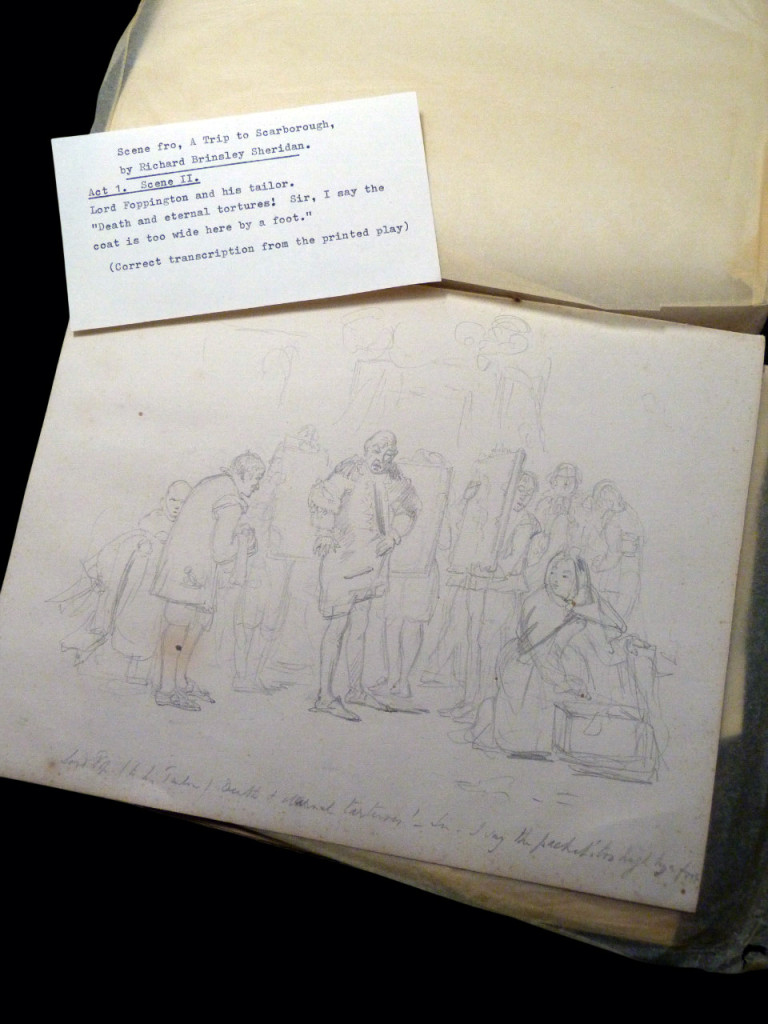 Scene fro, A Trip to Scarborough,
by Richard Brinsley Sheridan.
Act 1. Scene II.
Lord Foppington and his tailor.
"Death and eternal tortures! Sir, I say the
coat is too wide here by a foot."
(Correct transcription from the printed play)
Lord Fop. (to his Tailor) Death & eternal tortures! – Sir – I say the packet's too high by a foot